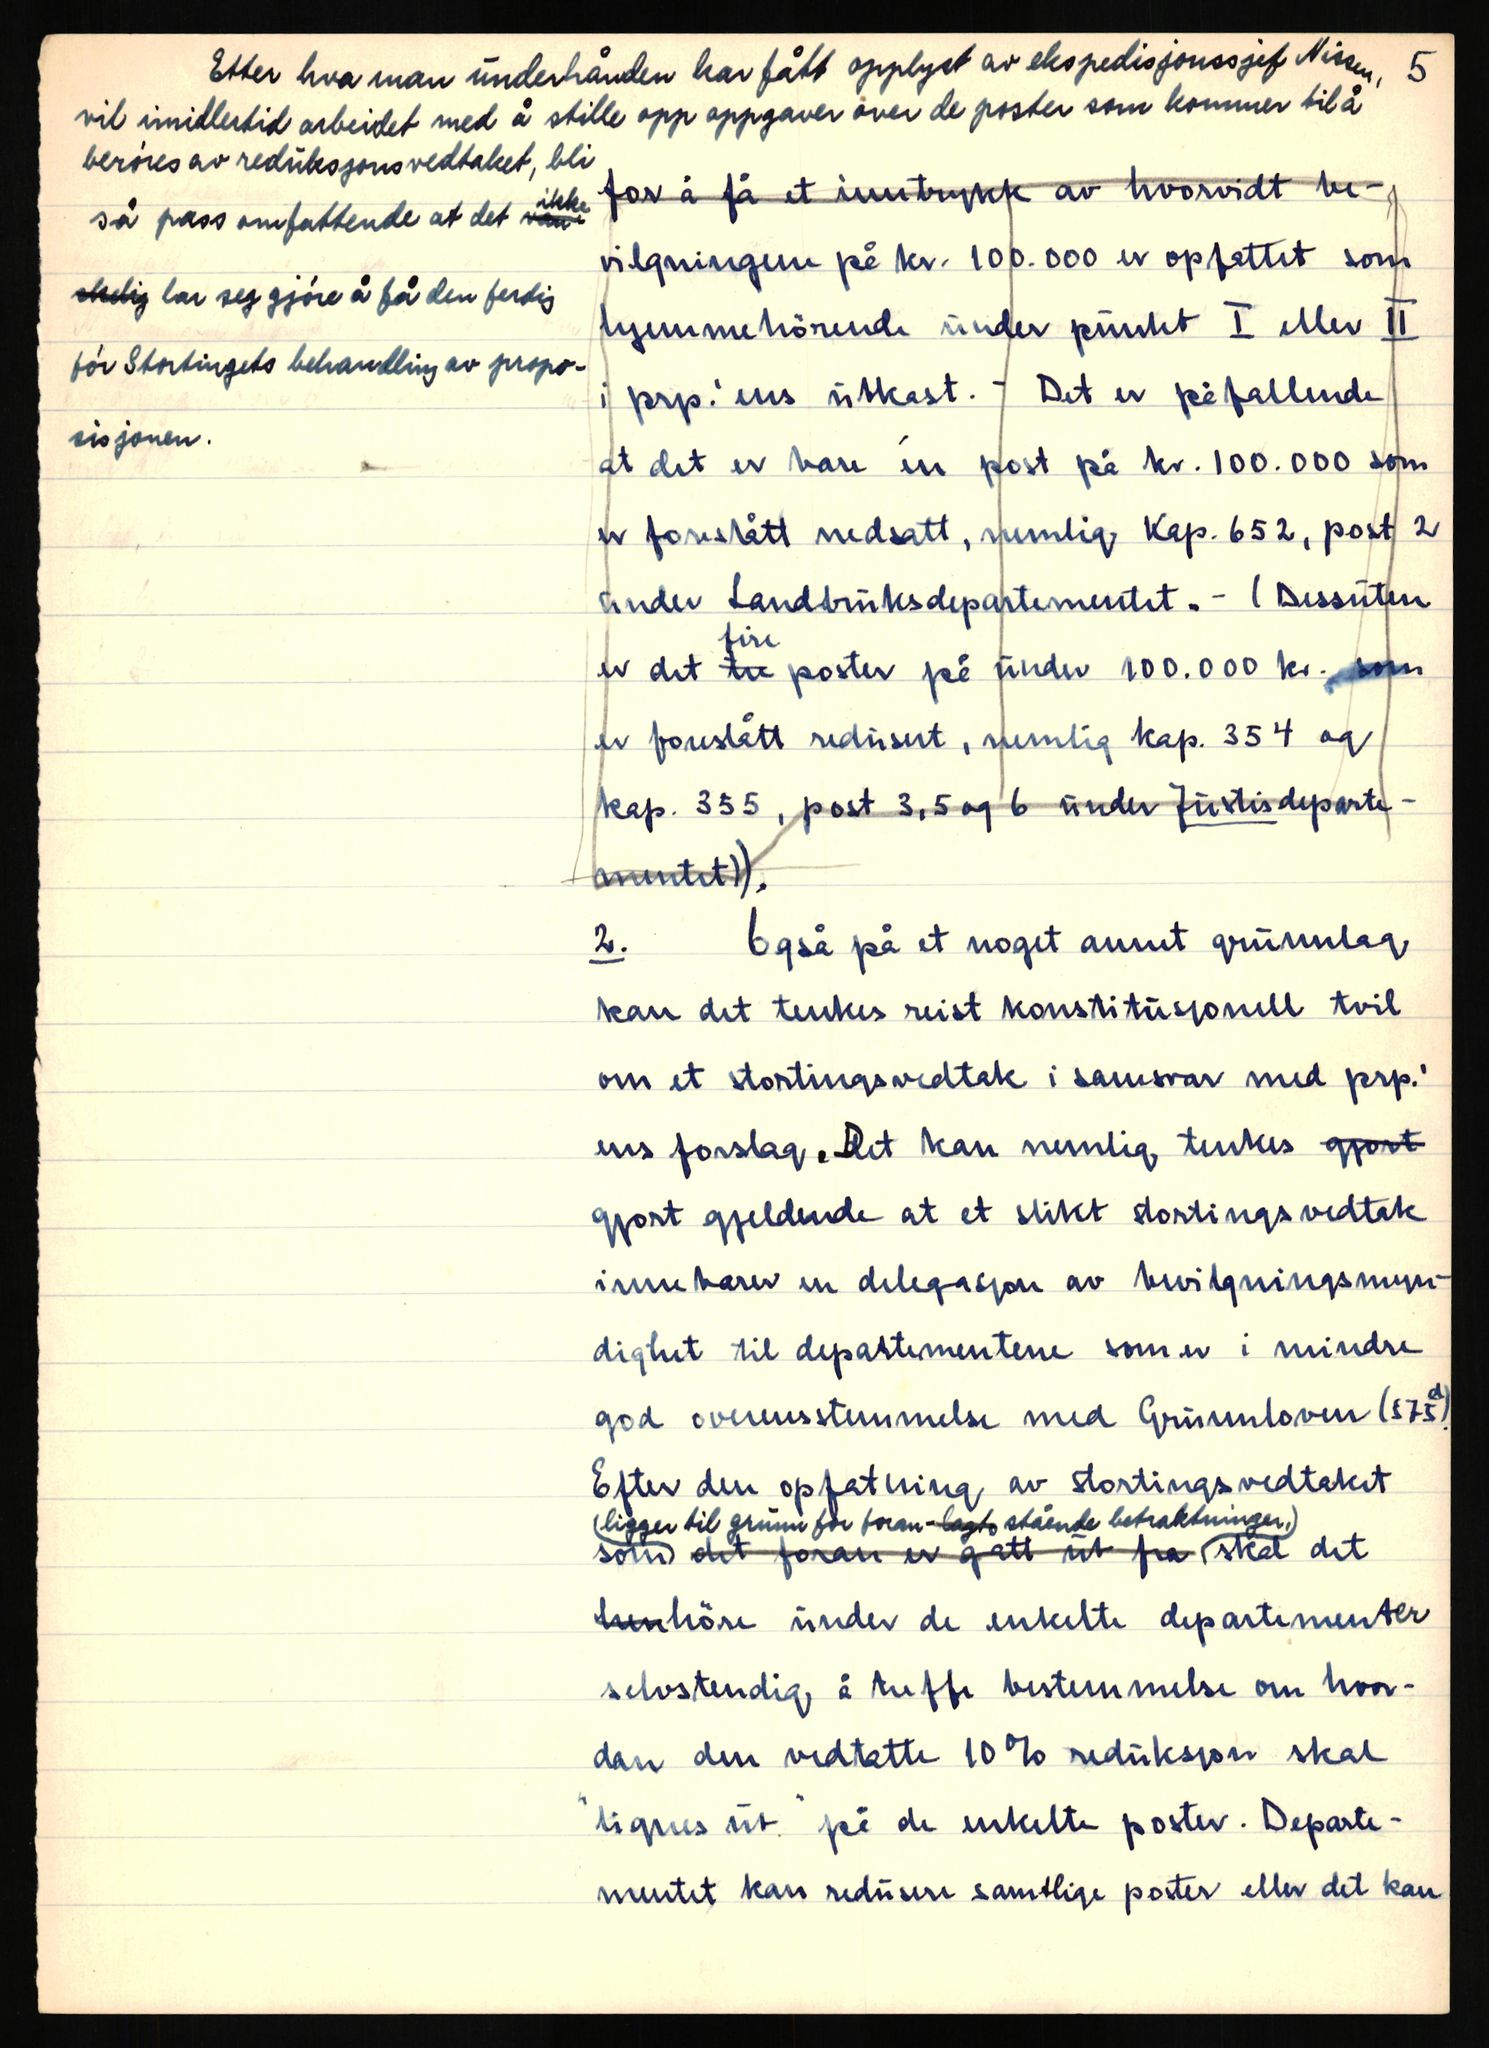 5
Etter hva man underhånden har fått opplyst av ekspedisjonssjef Nissen,
vil imidlertid arbeidet med å stille opp oppgaver over de poster som kommer til å
beröres av reduksjonsvedtaket, bli
så pass omfattende at det van- ikke
skelig lar seg gjöre å få den ferdig
för Stortingets behandling av propo-
sisjonen.
for å få et inntrykk av hvorvidt be-
vilgningene på kr. 100.000 er opfattet som
hjemmehörende under punkt I eller II
i prp.'ens utkast. - Det er påfallende
at det er bare én post på kr. 100.000 som
er foreslått nedsatt, nemlig Kap. 652, post 2
under Landbruksdepartementet. - (Dessuten
er det tre fire poster på under 100.000 kr. som
er foreslått redusert, nemlig kap. 354 og
kap. 355, post 3, 5 og 6 under Justisdeparte-
mentet)).
2. Også på et noget annet grunnlag
kan det tenkes reist konstitusjonell tvil
om et stortingsvedtak i samsvar med prp.'
ens forslag. Det kan nemlig tenkes gjort
gjort gjeldende at et slikt stortingsvedtak
innebærer en delegasjon av bevilgningsmyn-
dighet til departementene som er i mindre
god overensstemmelse med Grunnloven (§75d).
Efter den opfatning av stortingsvedtaket
(ligger til grunn for foran-lagts stående betraktninger,)
som) det foran er gått ut fra (skal det
henhöre under de enkelte departementer
selvstendig å treffe bestemmelse om hvor-
dan den vedtatte 10% reduksjon skal
"lignes ut" på de enkelte poster. Departe-
mentet kan redusere samtlige poster eller det kan